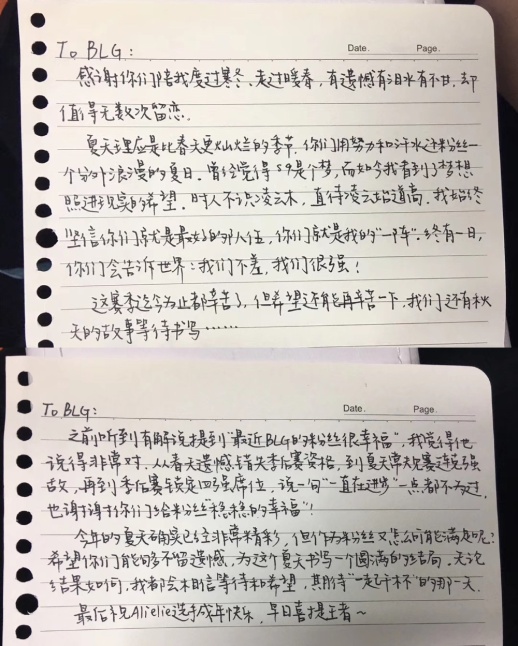 To BLG:
Date. Page.
感谢你们陪我度过寒冬、走过暖春,有遗憾有泪水有不甘,却
值得无数次留恋.
夏天理应是比春天更灿烂的季节,你们用努力和汗水还粉丝一
个分外浪漫的夏日。曾经觉得S9是个梦,而如今我看到了梦想
照进现实的希望。时人不识凌云木,直待凌云始道高.我始终
坚信你们就是最好的队伍,你们就是我的"一阵"。终有一日,
你们会告诉世界:我们不差,我们很强!
这赛季迄今为止都辛苦了,但希望还能再辛苦一下,我们还有秋
天的故事等待书写……
To BLG:
Date. Page.
之前听到有解说提到"最近BLG的粉丝很幸福",我觉得他
说得非常对.从春天遗憾错失季后赛资格,到夏天常规赛连克强
敌,再到季后赛锁定四强席位,说一句"一直在进步"一点都不为过,
也谢谢你们给粉丝"稳稳的幸福"!
今年的夏天确实已经非常精彩,但作为粉丝又怎么可能满足呢?
希望你们能够不留遗憾,为这个夏天书写一个圆满的结局,无论
结果如何,我都会相信等待和希望,期待"一起干杯"的那一天.
最后祝Alielie选手成年快乐,早日喜提王者~